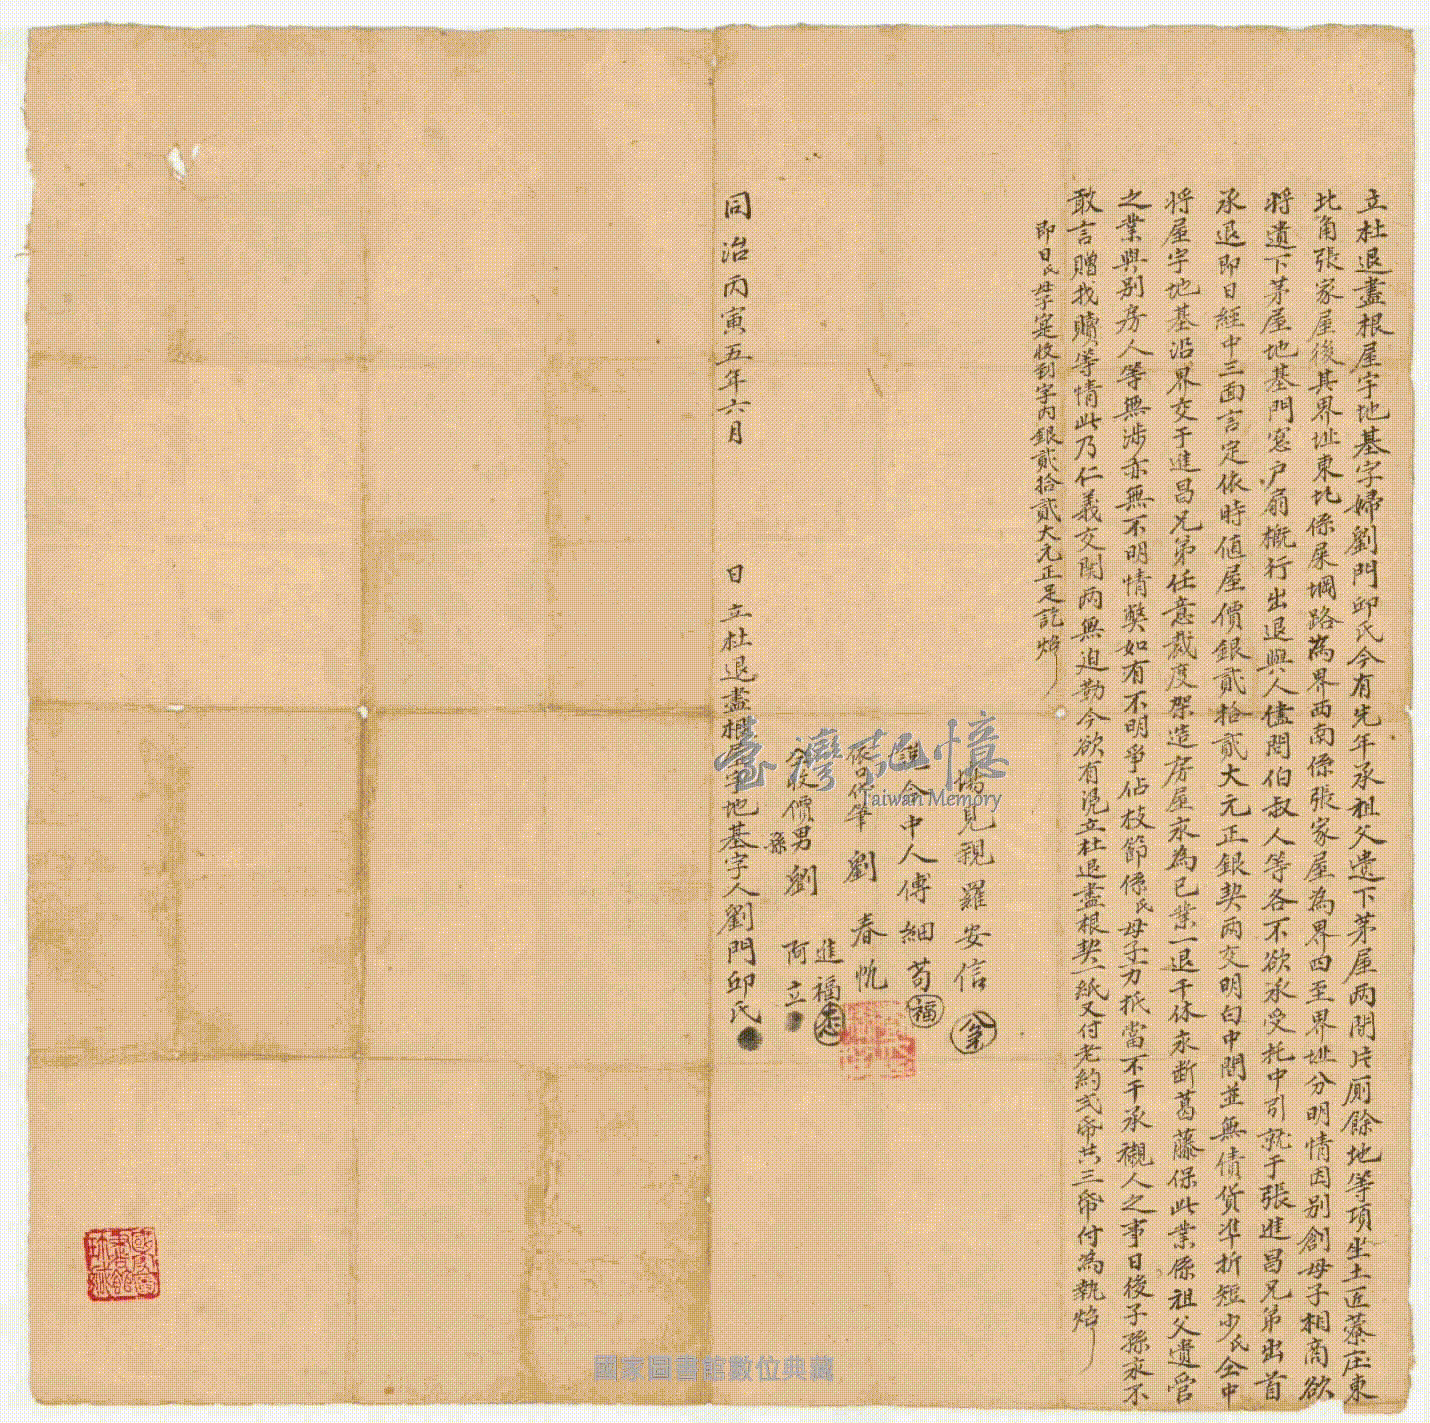 立杜退盡根屋宇地基字婦劉門邱氏今有先年承祖父遺下茅屋两間片厠餘地等項坐土匠藔庄東
北角張家屋後其界址東北係屎堈路為界西南係張家屋為界四至界址分明情因别創母子相商欲
将遺下茅屋地基門窓户扇概行出退與人儘問伯叔人等各不欲承受托中引就于張進昌兄弟出首
承退即日經中三面言定依時值屋價銀貳拾貳大元正銀契两交明白中間並無債貨準折短少氏仝中
将屋宇地基沿界交于進昌兄弟任意裁度架造房屋永為已業一退千休永断葛藤保此業係祖父遺管
之業與别房人等無涉亦無不明情弊如有不明爭佔枝節係氏母子力抵當不干承襯人之事日後子孫永不
敢言贈找贖等情此乃仁義交関两無迫勒今欲有凴立杜退盡根契一紙又付老約弍帋共三帋付為執炤
即日氏母子寔收到字内銀貳拾貳大元正足訖炤
場見親羅安信
説合中人傅細苟 福
依口代筆劉春忻
仝收價男劉進福
孫 阿立
同治丙寅五年六月 日立杜退盡根屋宇地基字人劉門邱氏
臺灣記憶
Taiwan Memory
國家圖書館數位典藏
國家圖書館珍藏